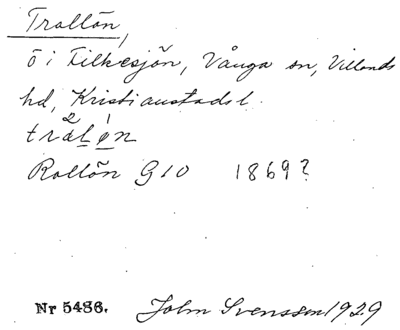 Trollön,
ö i Filkesjön, Vånga sn, Villands
hd, Kristianstads l.
Rollön G10 1869?
Nr 5486. John Svensson 1929